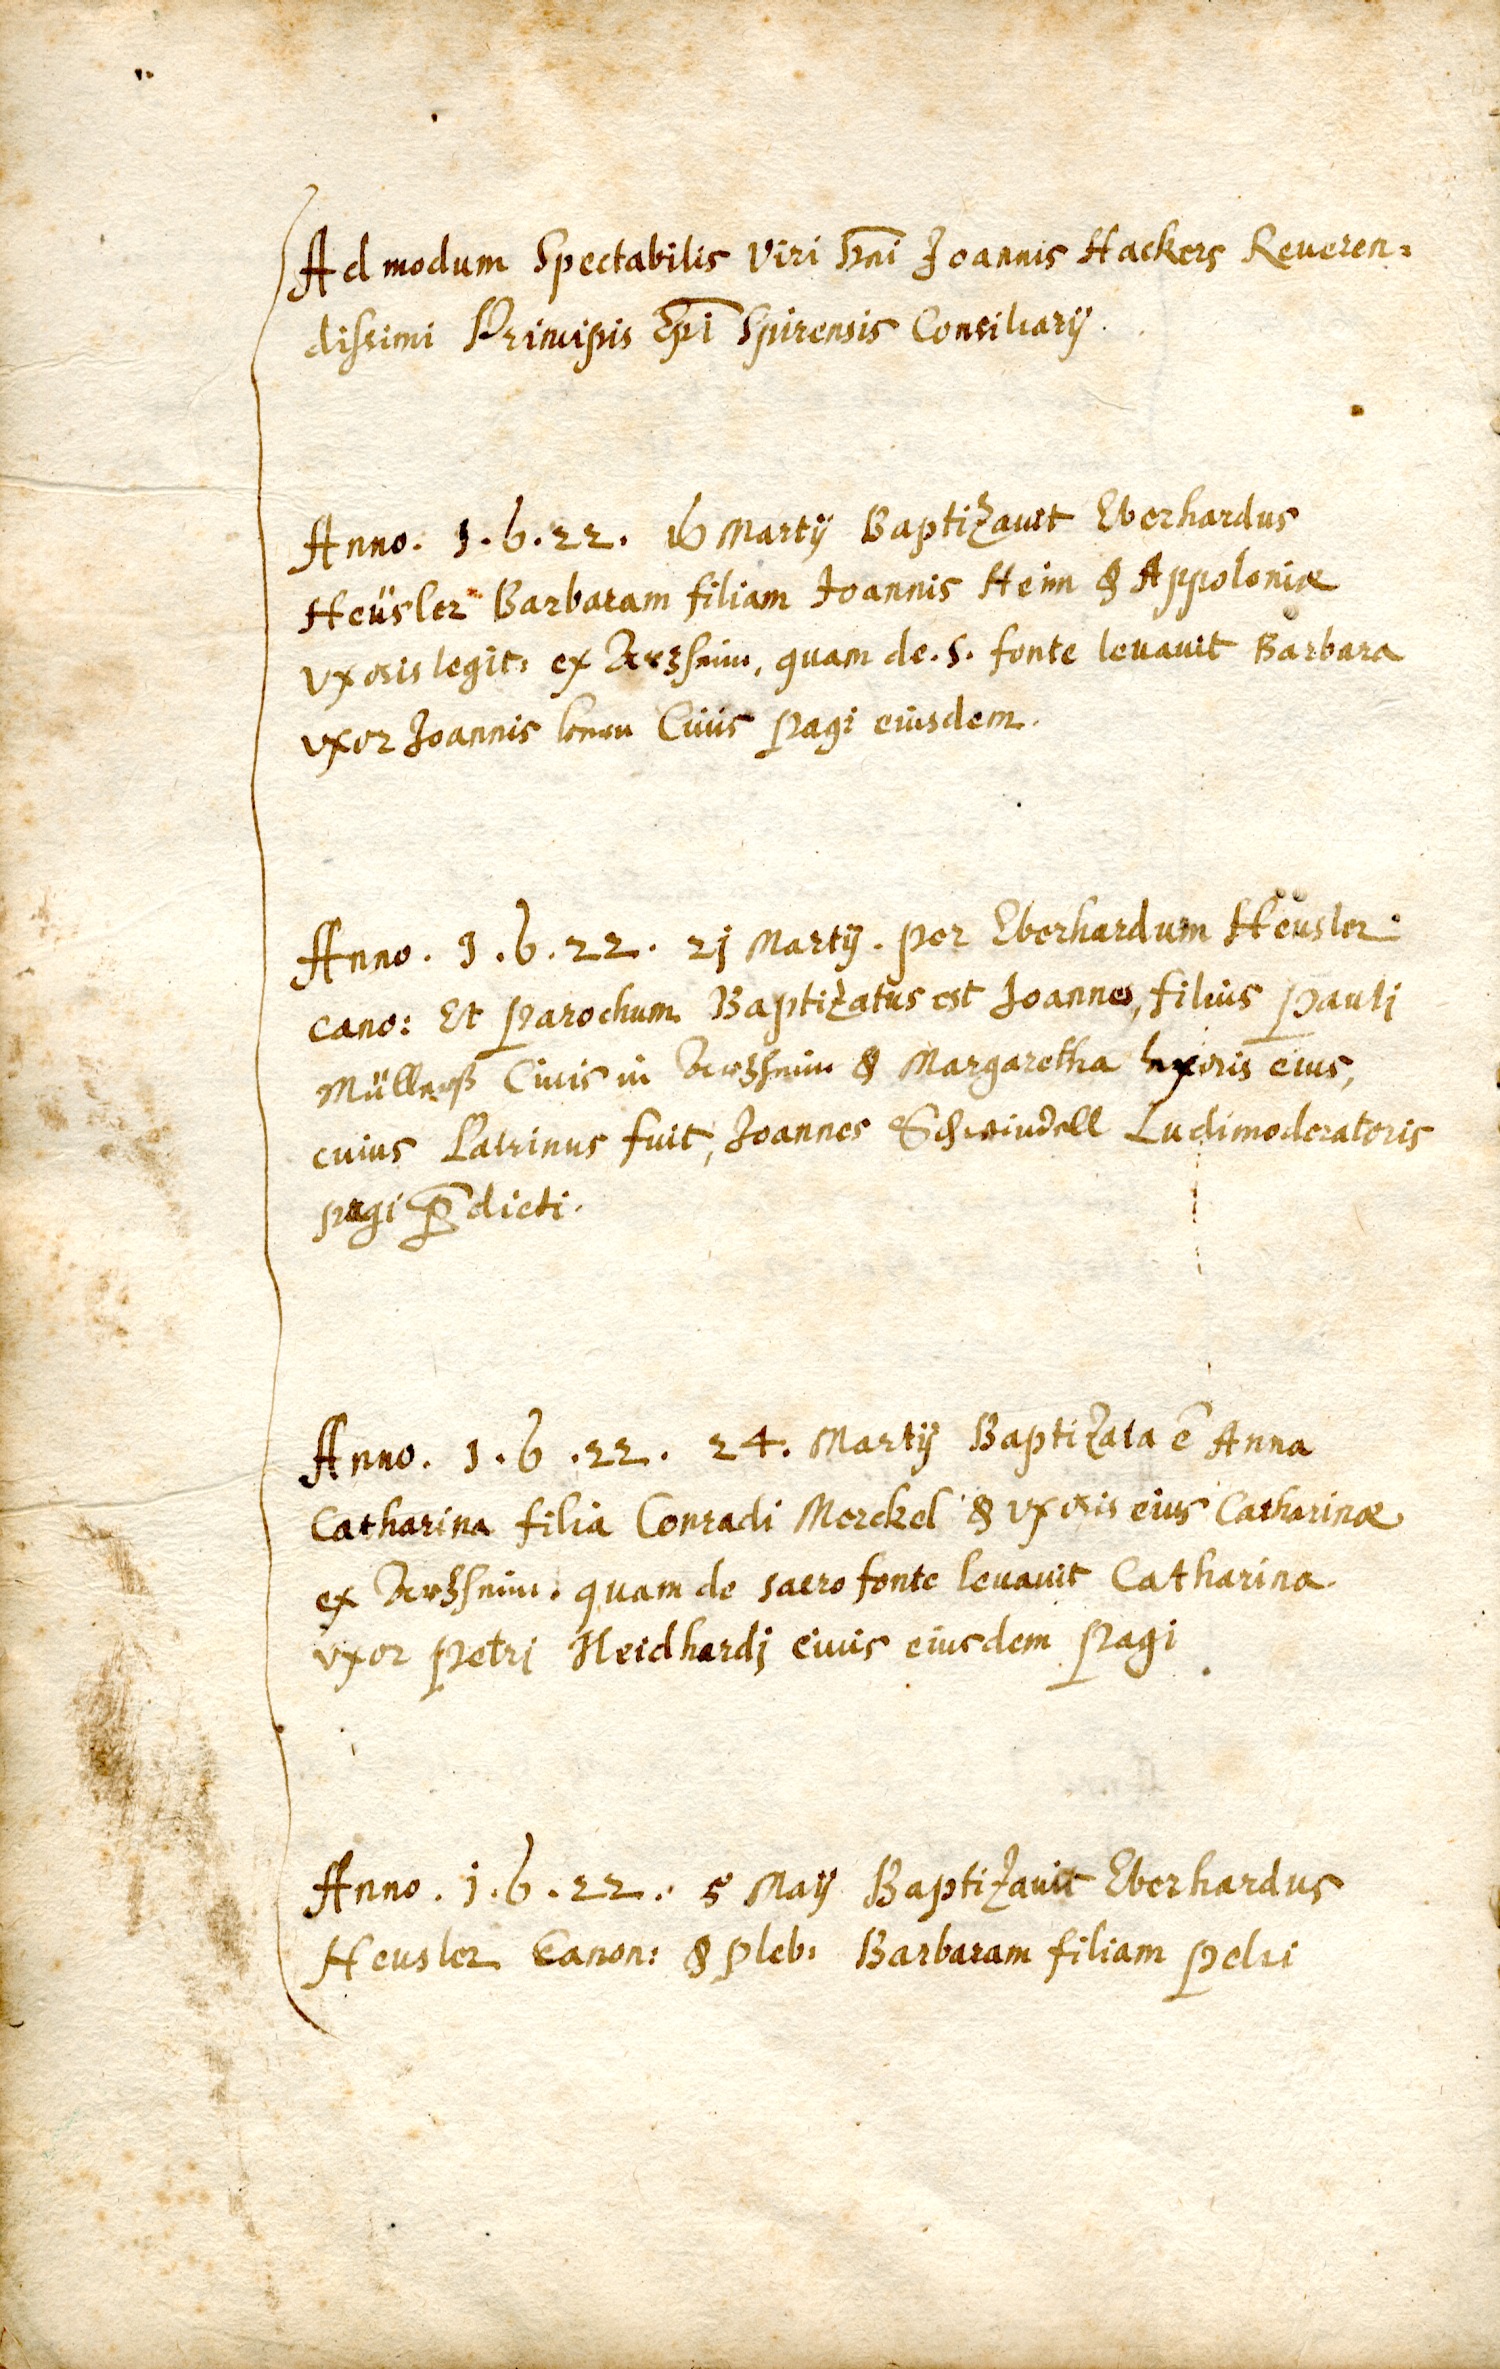 Admodum Spectabilis Viri Dni Joannis Hackers Reueren=
dissimi Principis Epi Spirensis Consiliarij.
Anno. 1.6.22. 16 Martij Baptizauit Eberhardus
Heüsler Barbaram filiam Joannis Heim & Appoloniæ
vxoris legit: ex Artzheim, quam de. S. fonte leuauit Barbara
vxor Joannis Ciuis pagi eiusdem.
Anno. 1.6.22. 21 Martij. per Eberhardum Heüsler
cano: Et parochum Baptizatus est Joannes, filius Pauli
Müllerß Ciuis in Artzheim & Margaretha vxoris eius,
cuius Patrinus fuit, Joannes Schwindell Ludimoderatoris
pagi p̄dicti.
Anno. 1.6.22. 24. Martij Baptizata ē Anna
Catharina filia Conradi Merckel & vxoris eius Catharinæ
ex Artzheim. quam de sacro fonte leuauit Catharina
vxor Petri Neidhardj ciuis eiusdem Pagi
Anno. 1.6.22. 5 Maij Baptizauit Eberhardus
Heusler Canon: & pleb: Barbaram filiam Petri